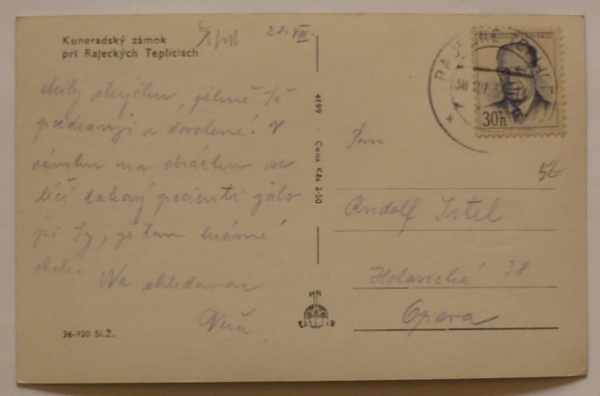 Kuneradský zámok
pri Rajeckých Tepliciach
28. VIII.
Milý strýčku, pěkně Tě
pozdravuji z dovolené! V
zámku na obrázku se
léčí takoví pacienti jako
jsi Ty, je tam krásné
okolí. Na shledanou
Věra
36-V20 Sl.Ž.
4199 Cena Kčs 2·50
ČESKOSLOVENSKO
30h
Pan
Rudolf Istel
Holasická 38
Opava